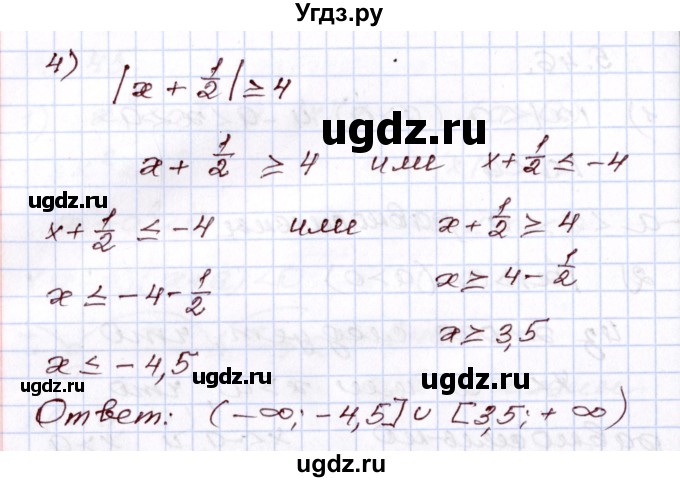 Угдз.ру
4)
|x + 1/2| ≥ 4
ugdz.ru
ugdz.ru
x + 1/2 ≥ 4 или x + 1/2 ≤ -4
ugdz.ru
x + 1/2 ≤ -4 или x + 1/2 ≥ 4
x ≤ -4 - 1/2 x ≥ 4 - 1/2
ugdz.ru
x ≥ 3,5
ugdz.ru
x ≤ -4,5
ugdz.ru
ugdz.ru
Ответ: (-∞; -4,5] ∪ [3,5; +∞)
ugdz.ru